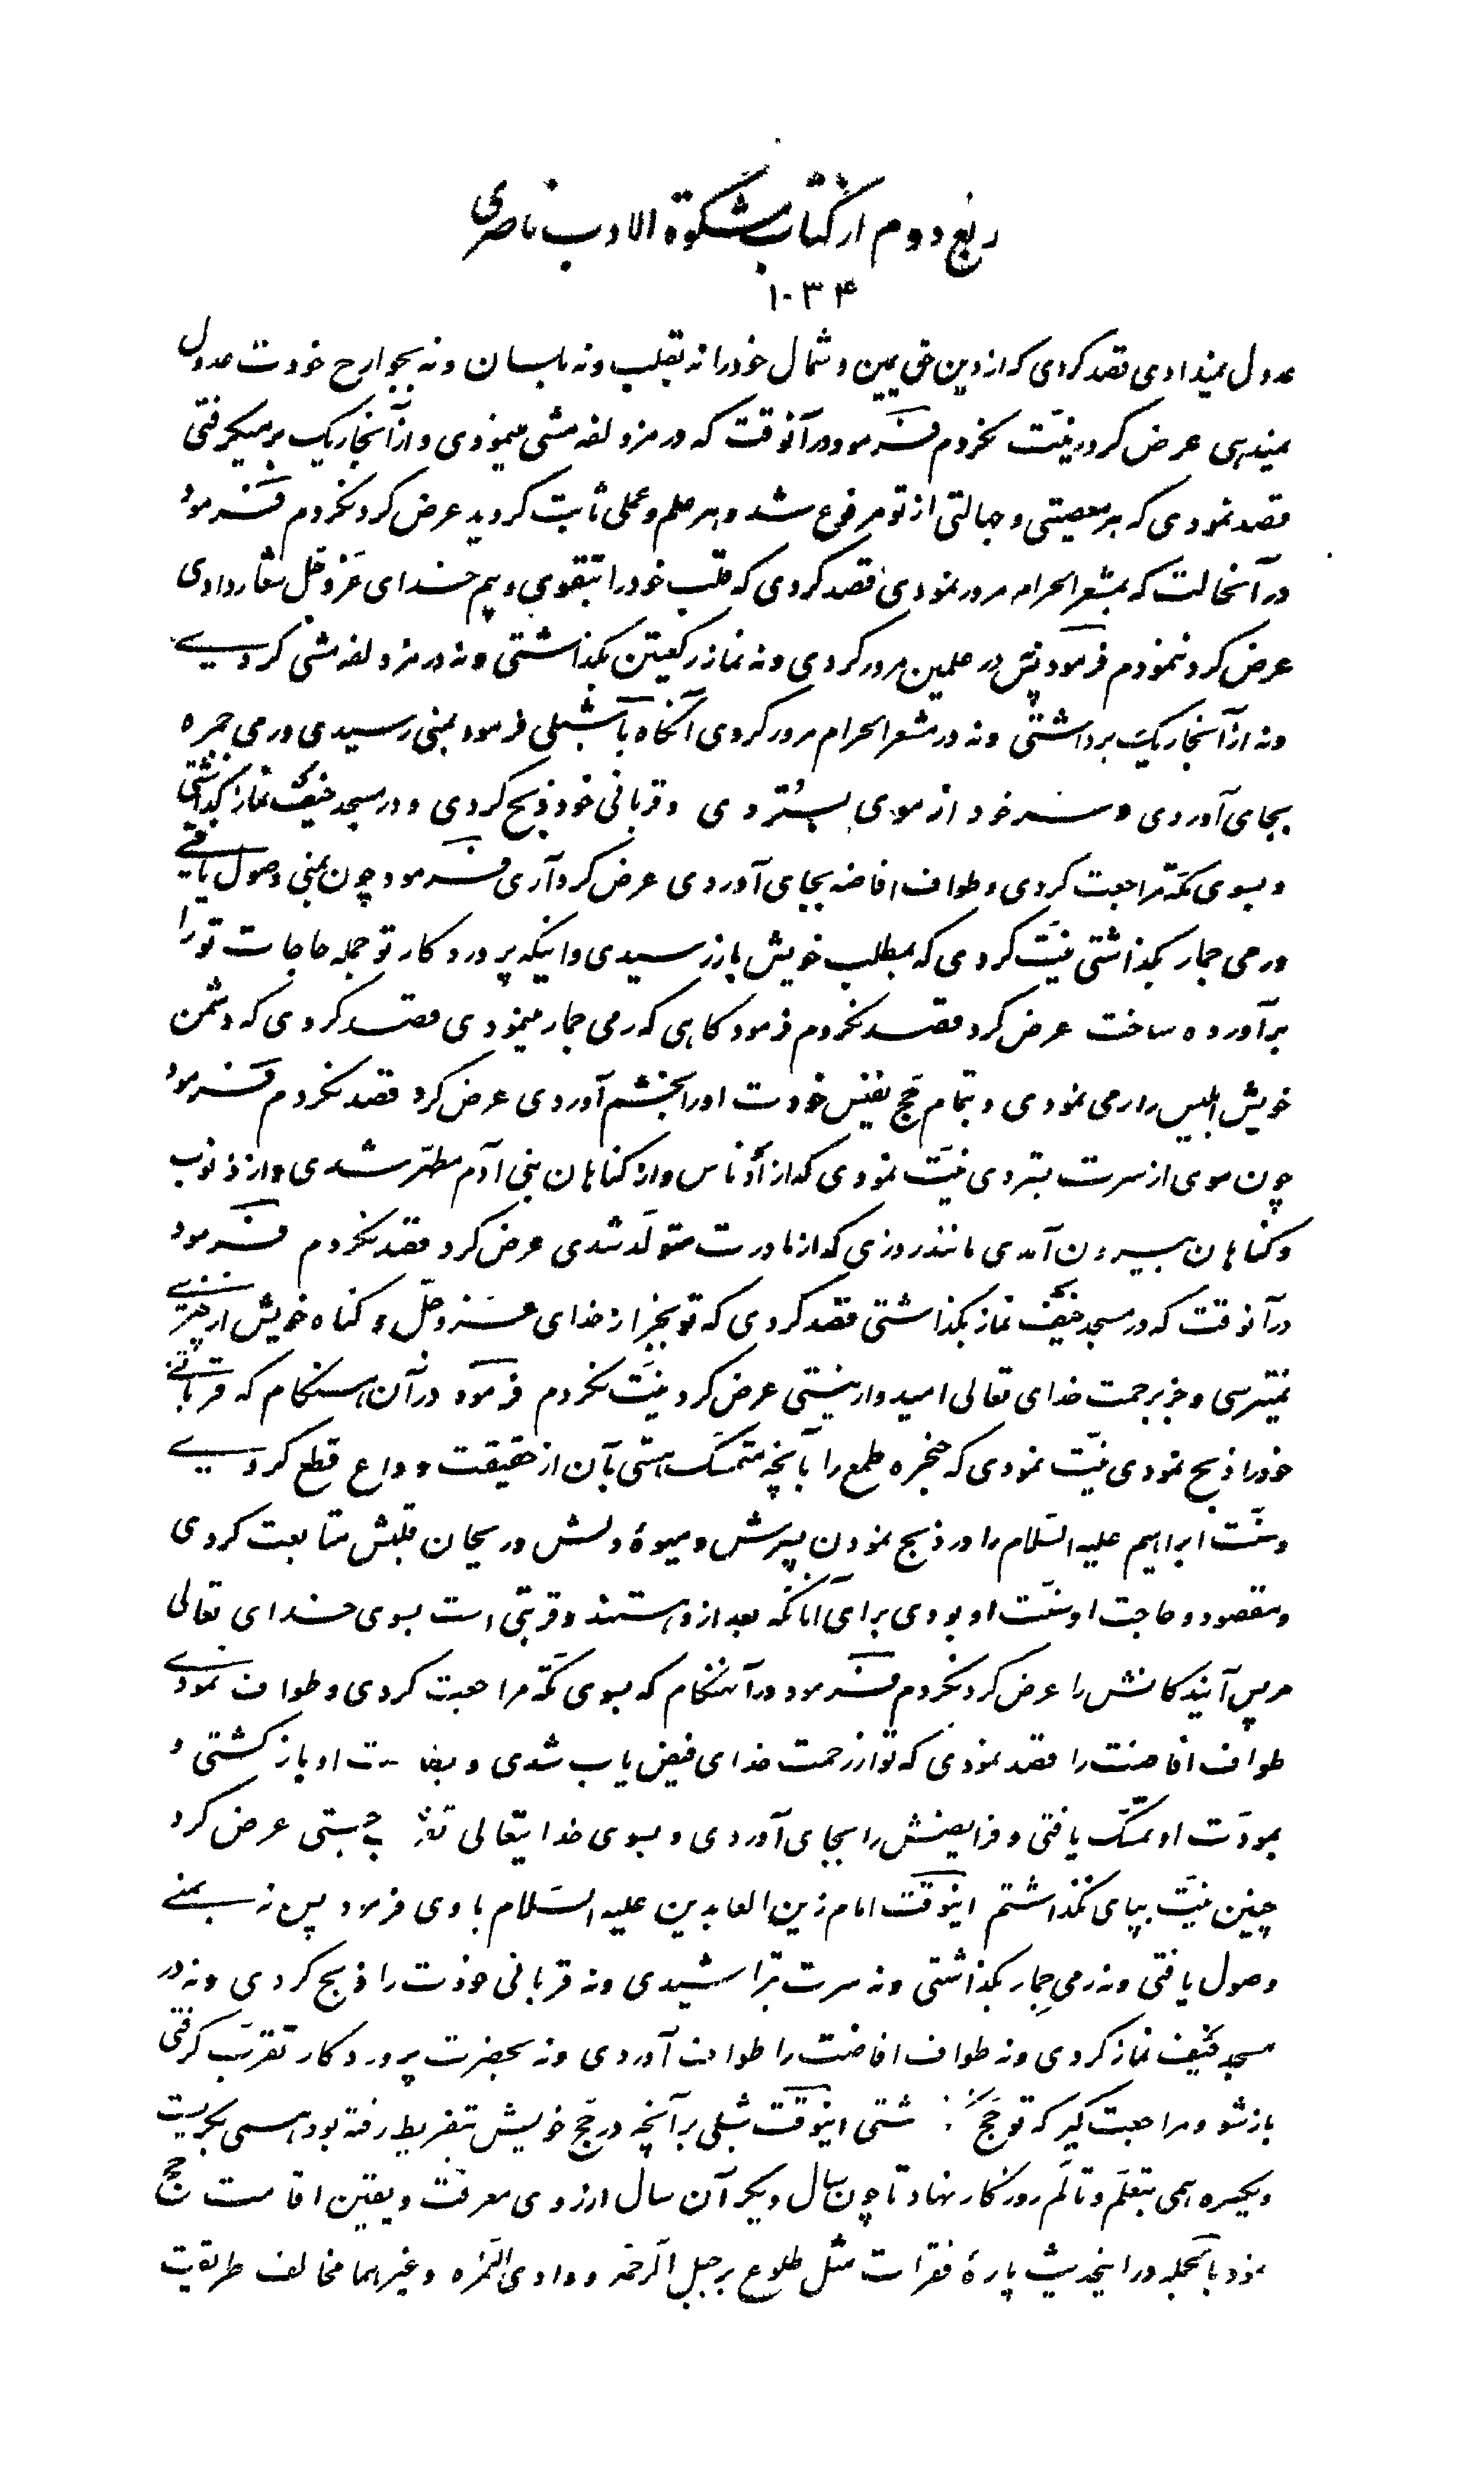 ربع دوم از کتاب مشکوة الادب ناصری
۱۰۳۴
عدول میندادی قصد کردی که از دین حق یمین و شمال خود را نه بقلب و نه بلسان و نه بجوارح خودت عدول
میندهی عرض کرد نیّت نکردم فرمود در آنوقت که در مزدلفه مشی مینمودی و از آنجا ریک برمیگرفتی
قصد نمودی که هر معصیتی و جهالتی از تو مرفوع شد و هر علم و عملی ثابت کردید عرض کرد نکردم فرمود
در آنحالت که بمشعر الحرام مرور نمودی قصد کردی که قلب خود را بتقوی و بیم خدای عزّ و جلّ شعار دادی
عرض کرد ننمودم فرمود پس در علمین مرور کردی و نه نماز رکعتین بکذاشتی و نه در مزدلفه مشی کردی
و نه از آنجا ریک برداشتی و نه در مشعر الحرام مرور کردی آنکاه با شبلی فرمود بمنی رسیدی و رمی جمره
بجای آوردی و سر خود از موی بستردی و قربانی خود ذبح کردی و در مسجد خیف نماز بکذاشتی
و بسوی مکّه مراجعت کردی و طواف افاضه بجای آوردی عرض کرد آری فرمود چون بمنی وصول یافتی
و رمی جمار بکذاشتی نیّت کردی که بمطلب خویش باز رسیدی و اینکه پروردکار تو جمله حاجات تو را
برآورده ساخت عرض کرد قصد نکردم فرمود کاهی که رمی جمار مینمودی قصد کردی که دشمن
خویش ابلیس را رمی نمودی و بتمام حجّ نفیس خودت او را بخشم آوردی عرض کرد قصد نکردم فرمود
چون موی از سرت بستردی نیّت نمودی که از أدناس و از کناهان بنی آدم مطهّر شدی و از ذنوب
و کناهان بیرون آمدی مانند روزی که از مادرت متولّد شدی عرض کرد قصد نکردم فرمود
در آنوقت که در مسجد خیف نماز بکذاشتی قصد کردی که تو بجز از خدای عزّ و جلّ و کناه خویش از چیزی
نمیترسی و جز برحمت خدای تعالی امیدوار نیستی عرض کرد نیّت نکردم فرمود در آن هنکام که قربانی
خود را ذبح نمودی نیّت نمودی که حنجره طمع را بآنچه متمسّک هستی بآن از حقیقت و داع قطع کردی
و سنّت ابراهیم علیه السّلام را در ذبح نمودن پسرش و میوهٔ دلش و ریحان قلبش متابعت کردی
و مقصود و حاجت او سنّت او بودی برای آنانکه بعد از و هستند و قربتی است بسوی خدای تعالی
مر پس آیندکانش را عرض کرد نکردم فرمود در آنهنکام که بسوی مکّه مراجعت کردی و طواف نمودی
طواف افاضت را قصد نمودی که تو از رحمت خدای فیض یاب شدی و او بازکشتی و
بمودّت او تمسّک یافتی و فرایضش را بجای آوردی و بسوی خدا یتعالی جستی عرض کرد
چنین نیّت بپای نکذاشتم اینوقت امام زین العابدین علیه السّلام با وی فرمود پس نه بمنی
وصول یافتی و نه رمی جمار بکذاشتی و نه سرت بتراشیدی و نه قربانی خودت را ذبح کردی و نه در
مسجد خیف نماز کردی و نه طواف افاضت را طواف آوردی و نه بحضرت پروردکار تقرّب کرفتی
باز شو و مراجعت کیر که تو حجّ شتی اینوقت شبلی بر آنچه در حجّ خویش بتفریط رفته بود همی بکریست
و یکسره همی بتعلّم و تالّم روزکار نهاد تا چون سال دیکر آن سال ارزوی معرفت و یقین اقامت حجّ
نمود بالجمله در اینحدیث پارهٔ فقرات مثل طلوع بر جبل الرّحمه و وادی النّمره و غیر هما مخالف طریقت